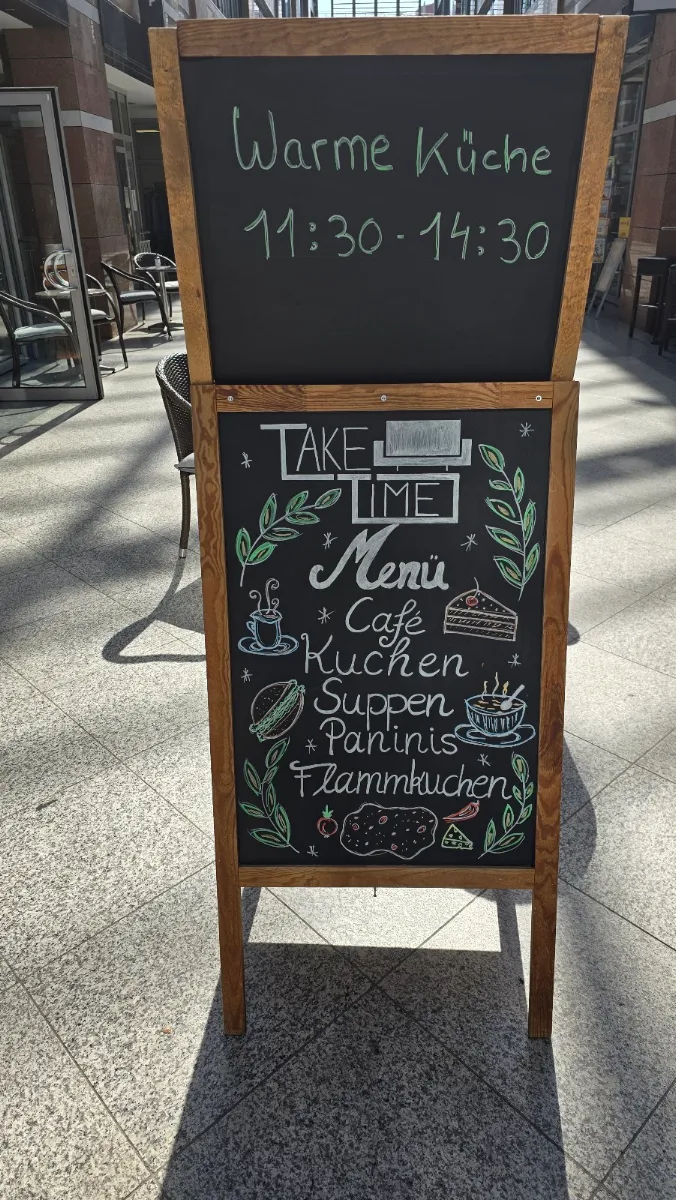 Warme Küche
11:30 - 14:30
TAKE
TIME
Menü
Café
Kuchen
Suppen
Paninis
Flammkuchen